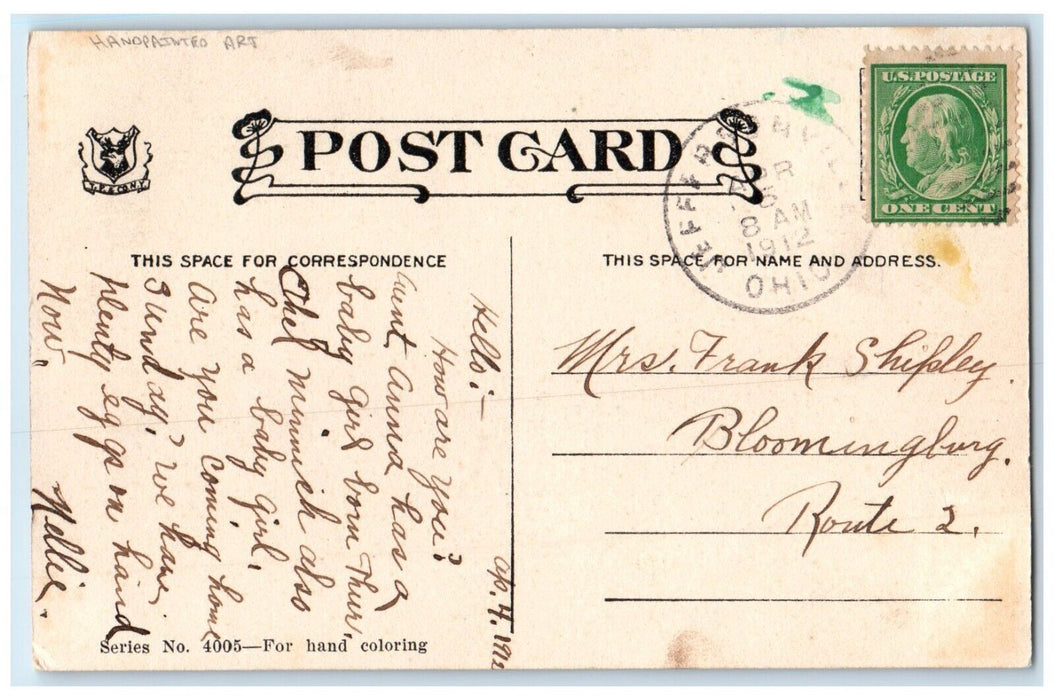 HANDPAINTED ART
U.S. POSTAGE
ONE CENT
POST CARD
JEFFERSONVILLE
APR
5
8 AM
1912
OHIO
THIS SPACE FOR CORRESPONDENCE
THIS SPACE FOR NAME AND ADDRESS.
Ap. 4. 1912
Hello:—
How are you?
Aunt Anna has a
baby girl born Thur,
Chet Minnich also
has a baby girl,
Are you coming home
Sunday? We have
plenty eggs on hand
Now.
Nellie.
Mrs. Frank Shipley
Bloomingburg.
Route 2.
Series No. 4005—For hand coloring